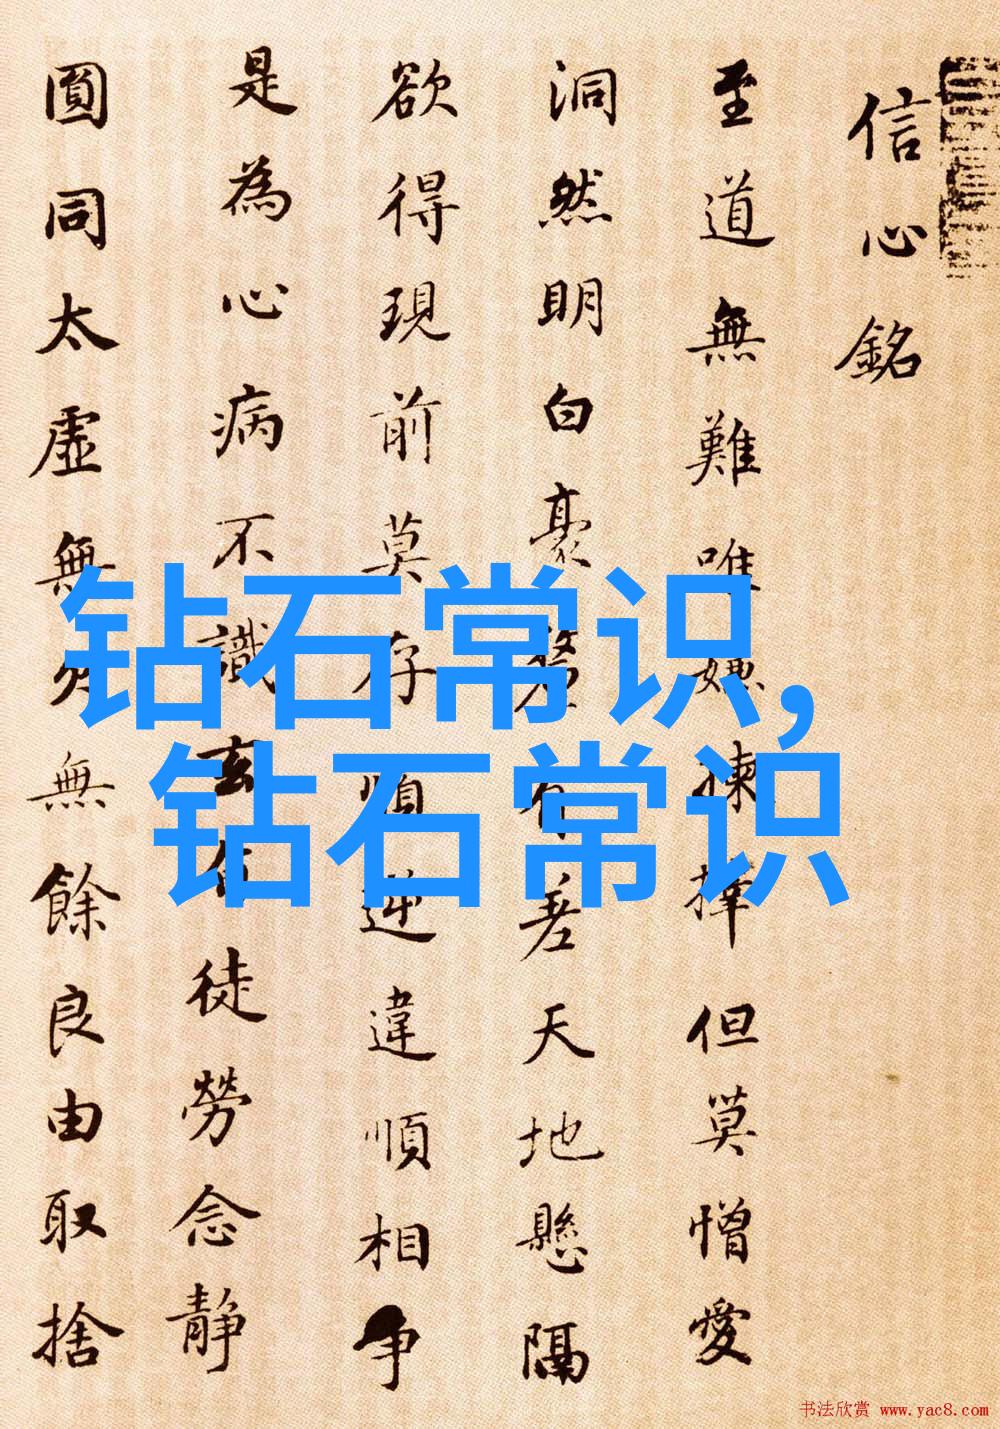 信心銘
至道無難唯嫌揀擇但莫憎愛
洞然明白豪氂有差天地懸隔
欲得現前莫存順逆違順相争
是為心病不識玄旨徒勞念静
圓同太虛無欠無餘良由取捨
钻石常识,
钻石常识
书法欣赏 www.yac8.com